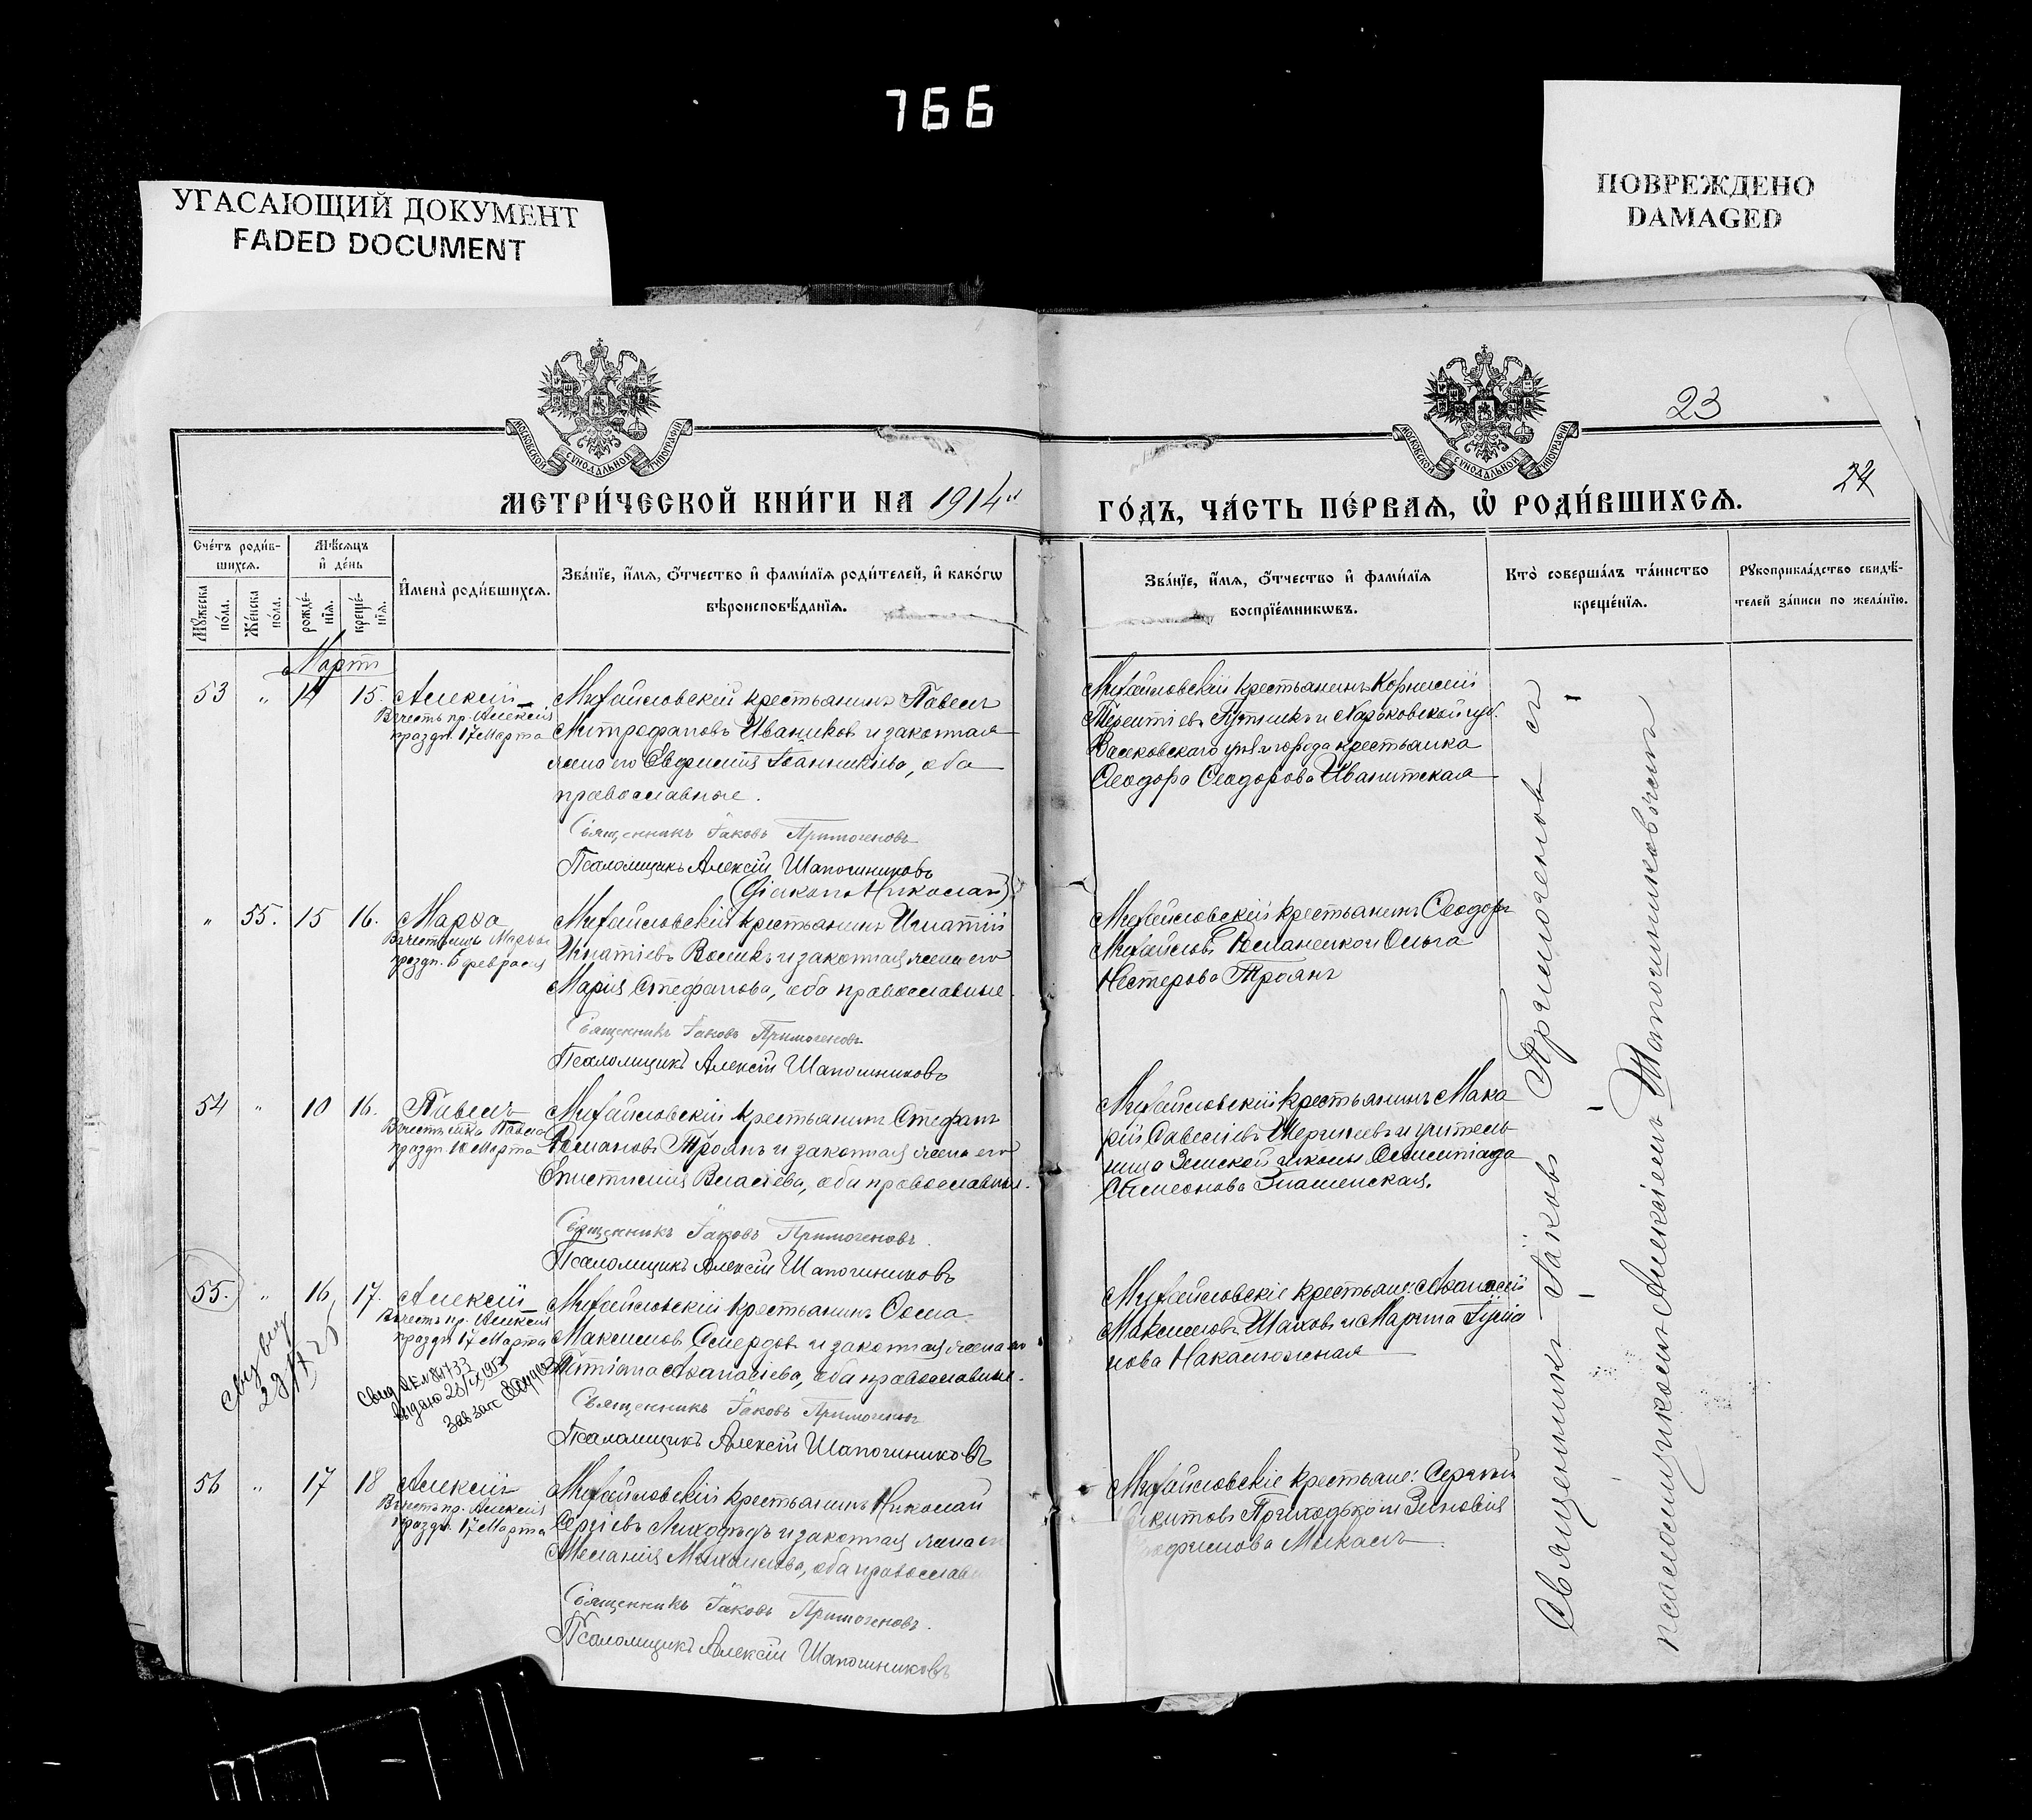 766
УГАСАЮЩИЙ ДОКУМЕНТ
FADED DOCUMENT
ПОВРЕЖДЕНО
DAMAGED
МОСКОВСКОЙ СѴНОДАЛЬНОЙ ТИПОГРАФІИ
МОСКОВСКОЙ СѴНОДАЛЬНОЙ ТИПОГРАФІИ
23
МЕТРИ́ЧЕСКОЙ КНИ́ГИ НА 1914й
ГО́ДЪ, ЧА́СТЬ ПЕ́РВАѦ, Ѽ РОДИ́ВШИХСѦ.
Сче́тъ роди́в-
шихсѧ.
Мꙋ́жеска по́ла.
Же́нска по́ла.
Мѣ́сѧцъ
и҆ де́нь
рожде́-нїѧ.
креще́-нїѧ.
И҆мена̀ роди́вшихсѧ.
Зва́нїе, и҆́мѧ, ѻ҆́тчество и҆ фами́лїѧ роди́телей, и҆ како́гѡ
вѣроисповѣ́данїѧ.
Зва́нїе, и҆́мѧ, ѻ҆́тчество и҆ фами́лїѧ
воспрїе́мникѡвъ.
Кто̀ соверша́лъ та́инство
креще́нїѧ.
Рꙋкоприкла́дство свидѣ́-
телей за́писи по жела́нїю.
Мартъ
53 " 14 15. Алексій
Въ честь пр. Алексія
праздн. 17 Марта
Михайловскій крестьянинъ Павелъ
Митрофановъ Иваников и законная
жена его Евфимія, оба
православные.
Священникъ Іаковъ Примогеновъ
Псаломщикъ Алексій Шапошниковъ
(Діаконъ Николай)
Михайловскій крестьянинъ Корнилій
Терентіевъ и Харьковской губ.
Валковскаго уѣз. и города крестьянка
Ѳеодора Ѳеодорова Иванитская
" 55. 15 16. Марѳа
праздн. 6 февраля
Михайловскій крестьянинъ Игнатій
Игнатіевъ Воликъ и законная жена его
Марія Стефанова, оба православные.
Священникъ Іаковъ Примогеновъ
Псаломщикъ Алексій Шапошниковъ
Михайловскій крестьянинъ Ѳеодоръ
Михайловъ и Ольга
Нестерова Троянъ
54 " 10 16. Павелъ
праздн. 10 Марта
Михайловскій крестьянинъ Стефанъ
Романовъ Троянъ и законная жена его
Власіева, оба православные.
Священникъ Іаковъ Примогеновъ.
Псаломщикъ Алексій Шапошниковъ
Михайловскій крестьянинъ Мака
рій Савеліевъ и учитель
ница Земской школы Олимпіада
Симеонова Знаменская.
55. " 16 17. Алексій
Въ честь пр. Алексія
праздн. 17 Марта
Михайловскій крестьянинъ Ѳома
Максимов Смердов и законная жена его
Татіана Аѳанасіева, оба православные.
Священникъ Іаковъ Примогеновъ
Псаломщикъ Алексій Шапошниковъ
Михайловскіе крестьяне: Аѳанасій
Максимовъ Шаховъ и Марѳа
нова Накалюжная
56 " 17 18 Алексій
Въ честь пр. Алексія
праздн. 17 Марта
Михайловскій крестьянинъ Николай
Сергіевъ и законная жена его
Меланія, оба православ
Священникъ Іаковъ Примогеновъ.
Псаломщикъ Алексій Шапошниковъ
Михайловскіе крестьяне: Сергій
Никитовъ Приходько и Зиновія
Священникъ Іаковъ Примогеновъ съ
псаломщикомъ Алексіемъ Шапошниковымъ